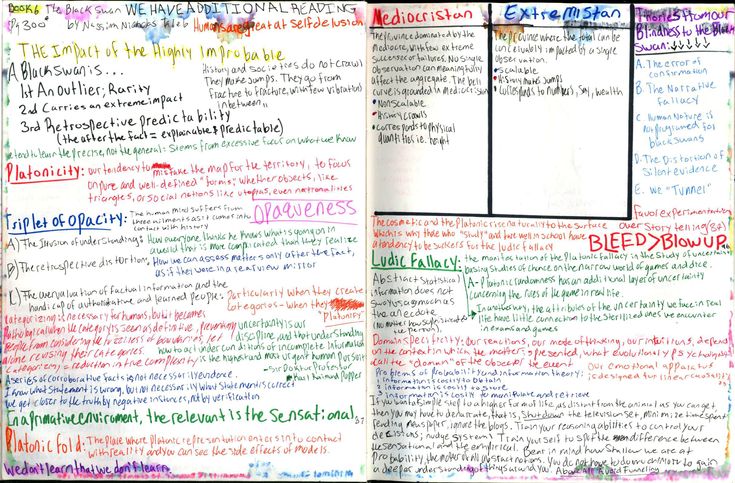 Book 6 The Black Swan WE HAVE ADDITIONAL READING
Pg 300 by Nassim Nicholas Taleb Humans are great at self delusion
The Impact of the Highly Improbable
A Black Swan is...
1st An outlier; Rarity
2nd Carries an extreme impact
3rd Retrospective predictability
(the after the fact = explainable & predictable)
History and societies do not crawl
They make jumps. They go from
fracture to fracture, with few vibrations
in between
we tend to learn the precise, not the general: Stems from excessive focus on what we know
Platonicity: our tendency to mistake the map for the territory, to focus
on pure and well-defined "forms", whether objects, like
triangles, or social nations like utopias, even nationalities
Triplet of Opacity: The human mind suffers from
three ailments as it comes into
contact with history
OPAQUENESS
A) The illusion of understanding: How everyone thinks he knows what is going on in
a world that is more complicated than they realize
B) The retrospective distortion: How we can assess matters only after the fact,
as if they were in a rearview mirror
C) The overvaluation of factual information and the
handicap of authoritative and learned people: Particularly when they create
categories - when they "Platonify"
categorizing is necessary for humans, but it becomes
Pathological when the category is seen as definitive, preventing
people from considering the fuzziness of boundaries, let
alone revising their categories.
categorizing = reduction in true complexity
uncertainty is our
discipline and that understanding
how to act under conditions of incomplete information
is the highest and most urgent human pursuit
- Sir Doktor Professor
Karl Raimund Popper
A series of corroborative facts is not necessarily evidence.
I know what statement is wrong, but not necessarily what statement is correct
we get closer to the truth by negative instances, not by verification
In a primative enviroment, the relevant is the sensational.
Platonic fold: The place where Platonic representation enters into contact
with reality and you can see the side effects of models.
we don't learn that we don't learn
Mediocristan
The province dominated by the
mediocre, with few extreme
successes or failures. No single
observation can meaningfully
affect the aggregate. The bell
curve is grounded in mediocristan
• Nonscalable
• History crawls
• corresponds to physical
quantities i.e. height
Extremistan
The province where the total can be
conceivably impacted by a single
observation.
• scalable
• History makes jumps
• corresponds to numbers, say, wealth
Blindness to the Black
Swan:
A. The error of
confirmation
B. The Narrative
Fallacy
C. Human Nature is
not programed for
black swans
D. The Distortion of
Silent evidence
E. we "Tunnel"
favor experimentation
over story telling (84)
BLEED > Blow up
The cosmetic and the Platonic rise naturally to the surface
which is why those who "study" and fare well in school have
a tendency to be suckers for the ludic fallacy
Ludic Fallacy: the manifestation of the Platonic Fallacy in the study of uncertainty
basing studies of chance on the narrow world of games and dice.
A-Platonic randomness has an additional layer of uncertainty
concerning the rules of the game in real life.
In another way, the attributes of the uncertainty we face in real
life have little connection to the sterilized ones we encounter
in exams and games
Abstract statistical
information does not
sway us as much as
the anecdote
(no matter how sophisticated
the person).
Domain specificity: Our reactions, our mode of thinking, our intuitions, depend
on the context in which the matter is presented, what evolutionary psychologists
call the "domain" of the object or the event
our emotional apparatus
is designed for linear causality
Problems of probability and information theory:
1 information is costly to obtain
2 information is costly to store
3 information is costly to manipulate and retrieve
If you want a simple step to a higher form of life, as distant from the animal as you can get
then you may have to denarrate, that is, Shutdown the television set, minimize time spent
reading newspaper, ignore the blogs. Train your reasoning abilities to control your
decisions; nudge system 1. Train yourself to spot the difference between
the sensational and the empirical. Bear in mind how shallow we are at
Probability, the mother of all abstract notions. You do not have to do much more to gain
a deeper understanding of things around you. Above all: avoid Tunneling